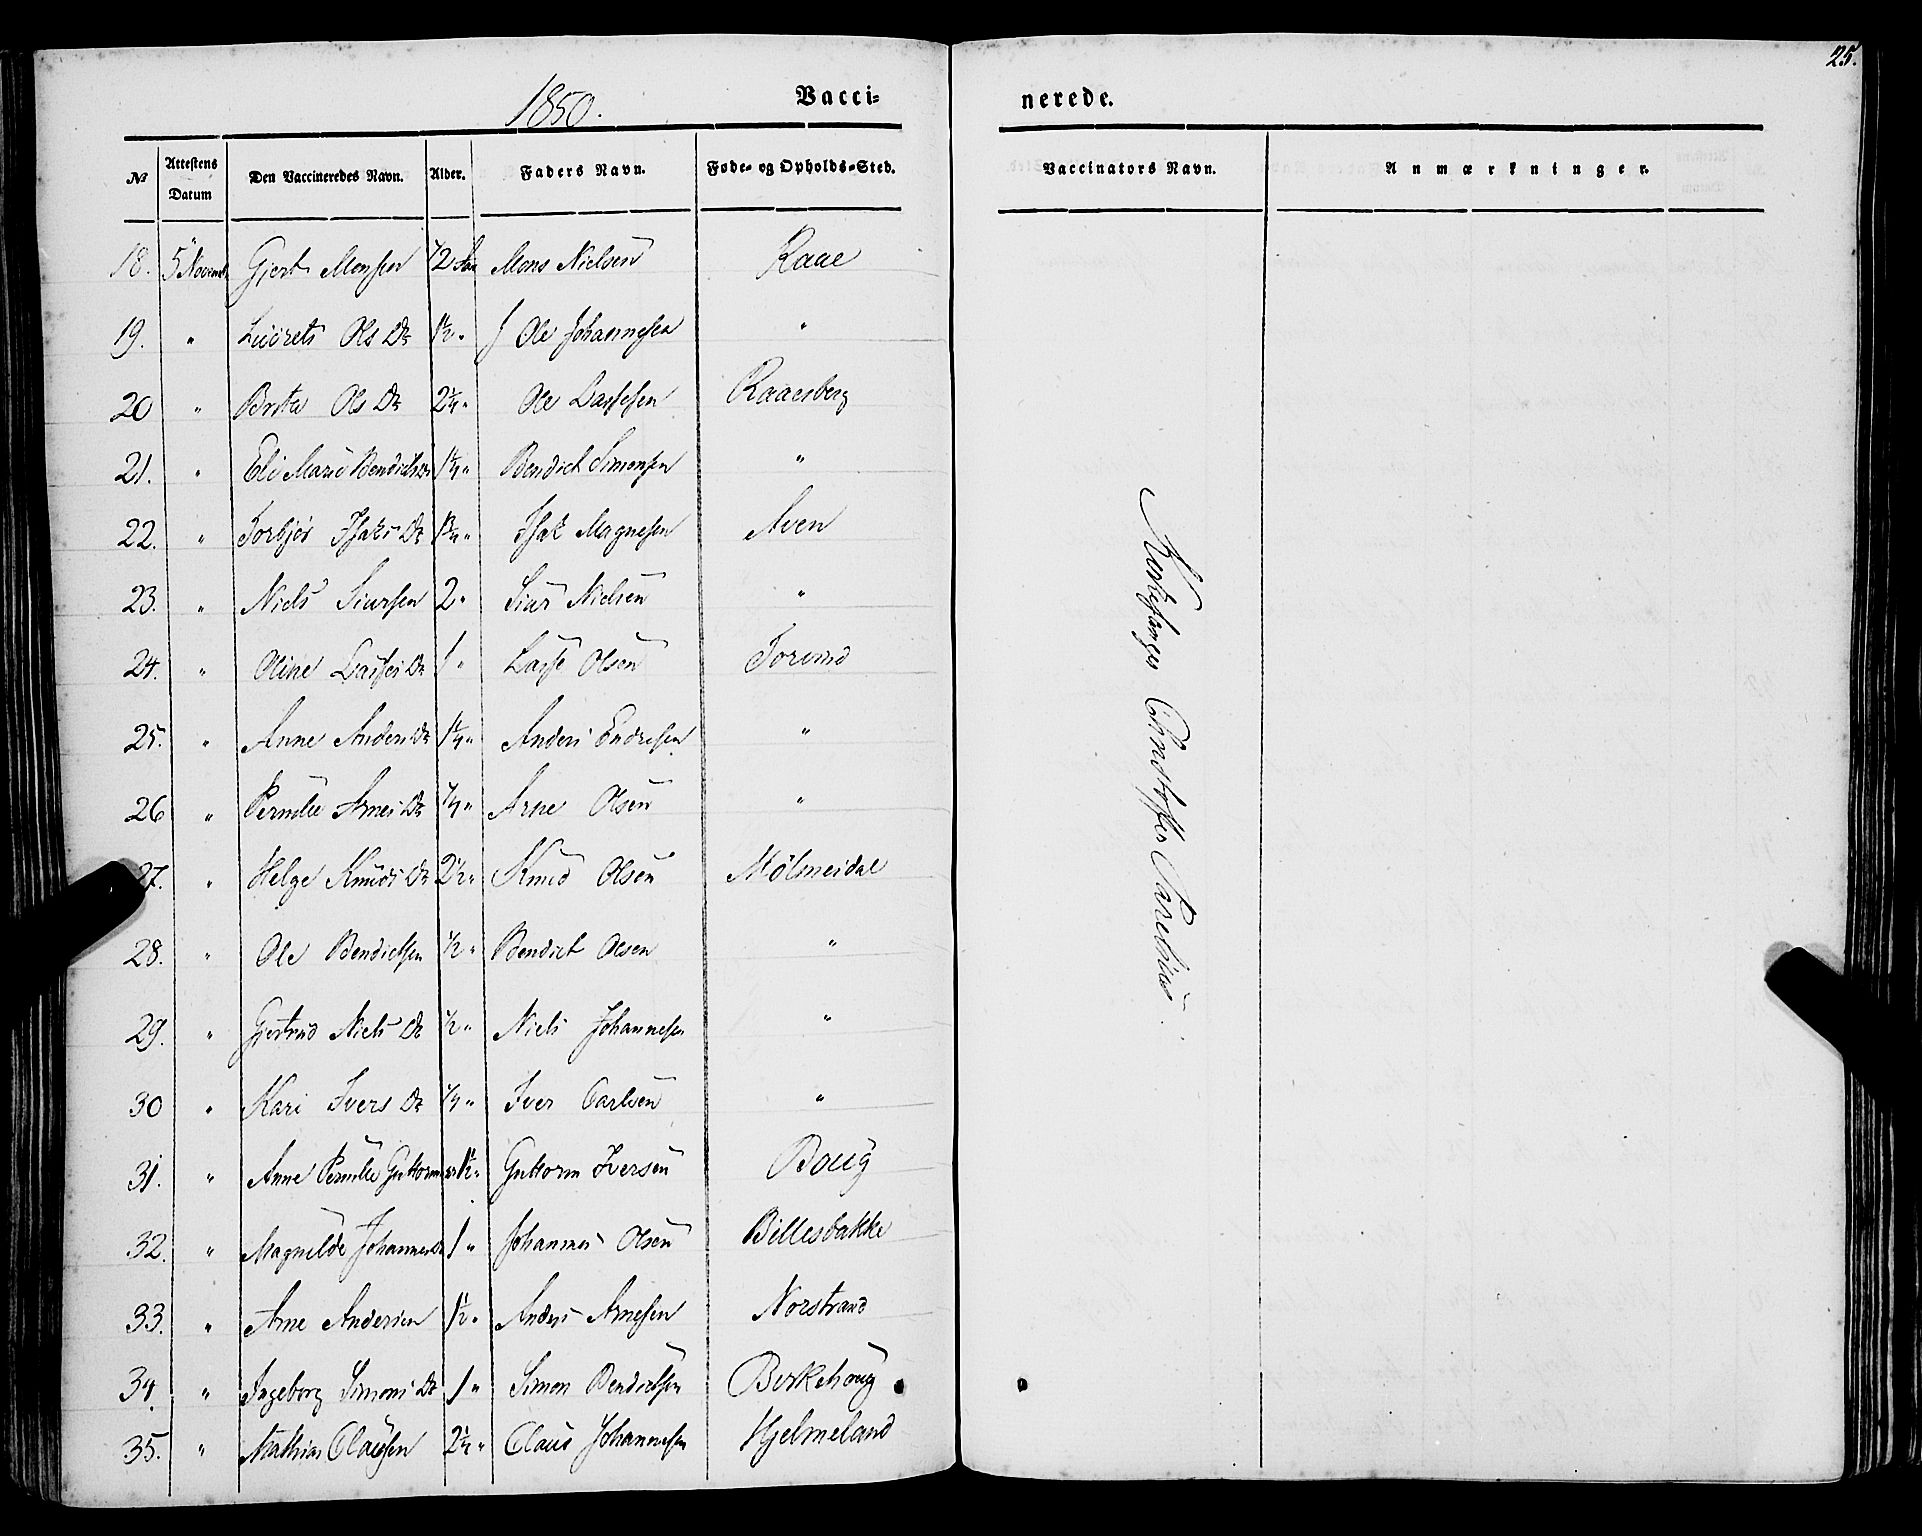 25.
1850. Vacci= nerede.
№ Attestens Datum Den Vaccineredes Navn. Alder. Faders Navn. Føde- og Opholds-Sted. Vaccinators Navn. Anmærkninger.
18. 5 Novemb Gjert Monsen 1/2 Aar Mons Nielsen Raae
19. " Ols Dr 1 1/2 " Ole Johannesen "
20 " Brita Ols Dr 2 1/4 " Ole Lassesen Raaesberg
21. " Eli Marie Bendicts Dr 1 1/4 " Bendict Simonsen "
22. " Torbjør Isaks Dr 1 3/4 " Isak Magnesen Aven
23. " Niels Siursen 2 " Siur Nielsen "
24. " Oline Lasses Dr 1 " Lasse Olsen Torvund
25. " Anne Anders Dr 1 1/4 " Anders Endresen "
26 " Pernille Arnes Dr 1/4 " Arne Olsen "
27. " Helge Knuds Dr 2 1/2 " Knud Olsen Mølmeidal
28. " Ole Bendictsen 1/2 " Bendict Olsen "
29. " Gjertrud Niels Dr 1/2 " Niels Johannesen "
30 " Kari Ivers Dr 1/4 " Iver Carlsen "
31. " Anne Pernille Guttorms Dr 1 1/2 " Guttorm Iversen Boug
32. " Magnilde Johannes Dr 1 " Johannes Olsen Billesbakke
33. " Arne Andersen 1 1/2 " Anders Arnesen Norstrand
34. " Ingeborg Simons Dr 1 " Simon Bendictsen Birkehoug
35. " Mathias Clausen 2 1/4 " Claus Johannesen Hjelmeland
Kirkesanger Christoffer